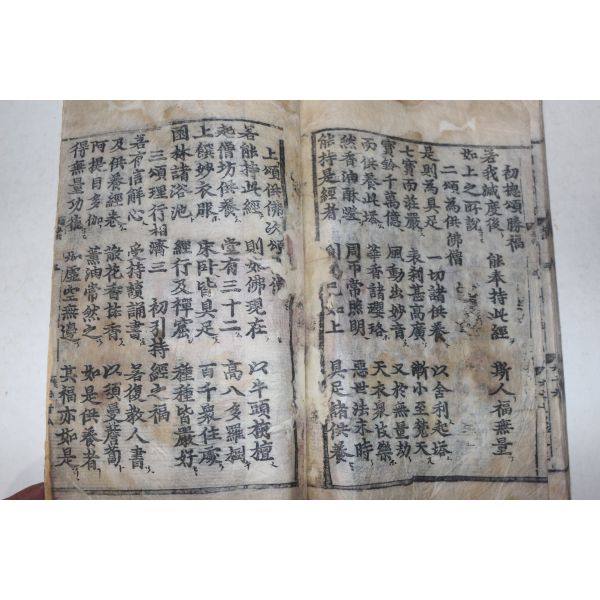 初揔頌勝福
若我滅度後 能奉持此經 斯人福無量
如上之所說
二頌為供佛僧
是則為具足 一切諸供養 以舍利起塔
七寶而莊嚴 表刹甚高廣 漸小至梵天
寶鈴千萬億 風動出妙音 又於無量劫
而供養此塔 華香諸瓔珞 天衣衆伎樂
然香油酥燈 周帀常照明 惡世法末時
能持是經者 則為已如上 具足諸供養
上頌供佛次頌
若能持此經 則如佛現在 以牛頭栴檀
起僧坊供養 堂有三十二 高八多羅樹
上饌妙衣服 床卧皆具足 百千衆住處
園林諸浴池 經行及禪窟 種種皆嚴好
三頌理行相濟三 初引持經之福
若有信解心 受持讀誦書 若復教人書
及供養經卷 散花香抹香 以須曼薝蔔
阿提目多伽 薰油常然之 如是供養者
得無量功德 如虛空無邊 其福亦如是